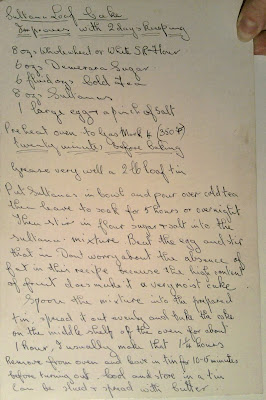 Sultana Loaf Cake
Improves with 2 days keeping
8 ozs Wholewheat or White S.R. Flour
6 ozs Demerara Sugar
6 fluid ozs Cold Tea
8 ozs Sultanas
1 large egg + a pinch of salt
Preheat oven to Gas Mark 4 (350°F)
twenty minutes before baking
Grease very well a 2 lb loaf tin
Put Sultanas in bowl and pour over cold tea
then leave to soak for 5 hours or overnight
Then stir in flour sugar + salt into the
sultana mixture. Beat the egg and stir
that in. Dont worry about the absence of
fat in this recipe because the high content
of fruit does make it a very moist cake.
Spoon the mixture into the prepared
tin, spread it out evenly and bake the cake
on the middle shelf of the oven for about
1 hour, I usually make that 1¼ hours
Remove from oven and leave in tin for 10-15 minutes
before turning out. Cool and store in a tin
Can be sliced + spread with butter.